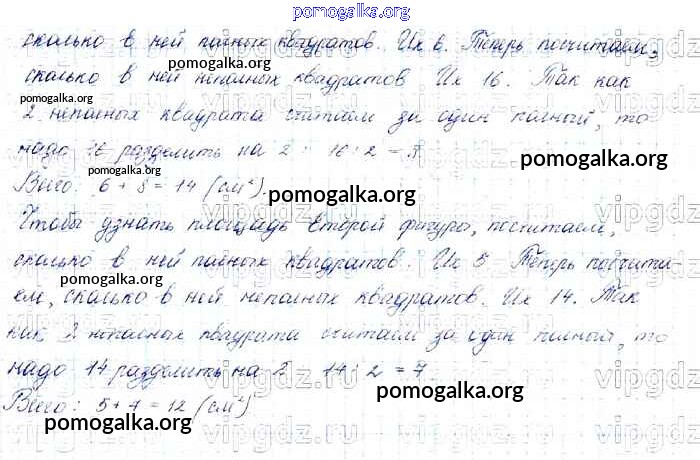 pomogalka.org
сколько в ней полных квадратов. Их 6. Теперь посчитаем,
pomogalka.org
сколько в ней неполных квадратов Их 16. Так как
pomogalka.org
2 неполных квадрата считаем за один полный, то
надо 16 разделить на 2 : 16 : 2 = 8
pomogalka.org
Всего: 6 + 8 = 14 (см²).
pomogalka.org
Чтобы узнать площадь второй фигуры, посчитаем,
pomogalka.org
сколько в ней полных квадратов. Их 5. Теперь посчита-
pomogalka.org
ем, сколько в ней неполных квадратов. Их 14. Так
как 2 неполных квадрата считаем за один полный, то
надо 14 разделить на 2 14 : 2 = 7
pomogalka.org
Всего: 5 + 7 = 12 (см²)
pomogalka.org
vipgdz.ru